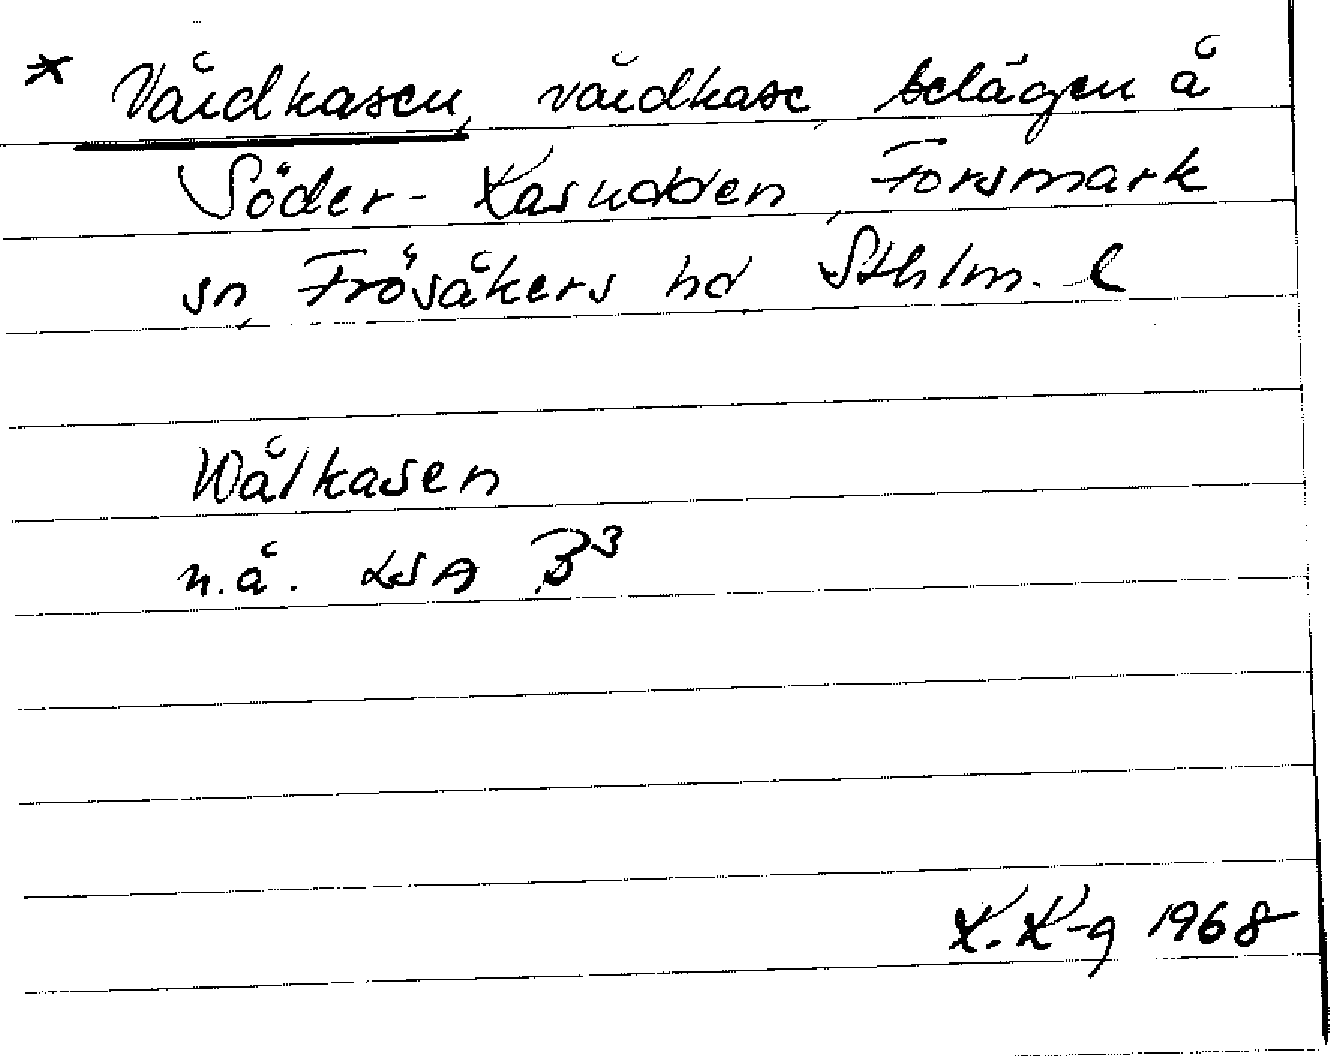 * Vårdkasen, vårdkase, belägen å
Söder-Kasudden, Forsmark
sn, Frösåkers hd, Sthlm. l
Wålkasen
n.å. LSA B³
K. K-g 1968